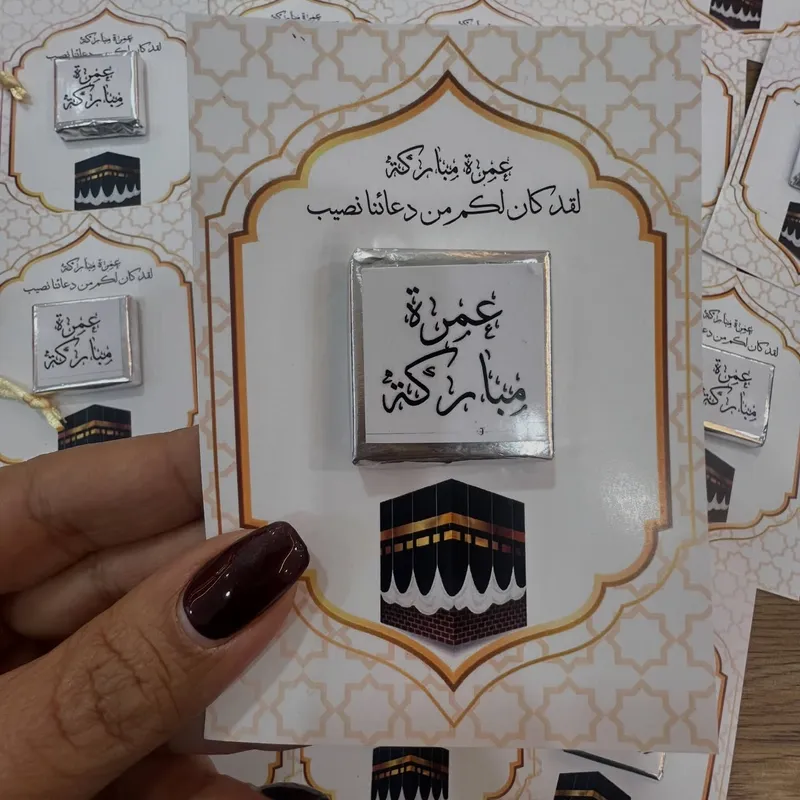 عمرة مباركة
لقد كان لكم من دعائنا نصيب
عمرة
مباركة
عمرة مباركة
لقد كان لكم من دعائنا نصيب
عمرة
مباركة
عمرة مباركة
لقد كان لكم من دعائنا نصيب
عمرة
مباركة
عمرة مباركة
عمرة
مباركة